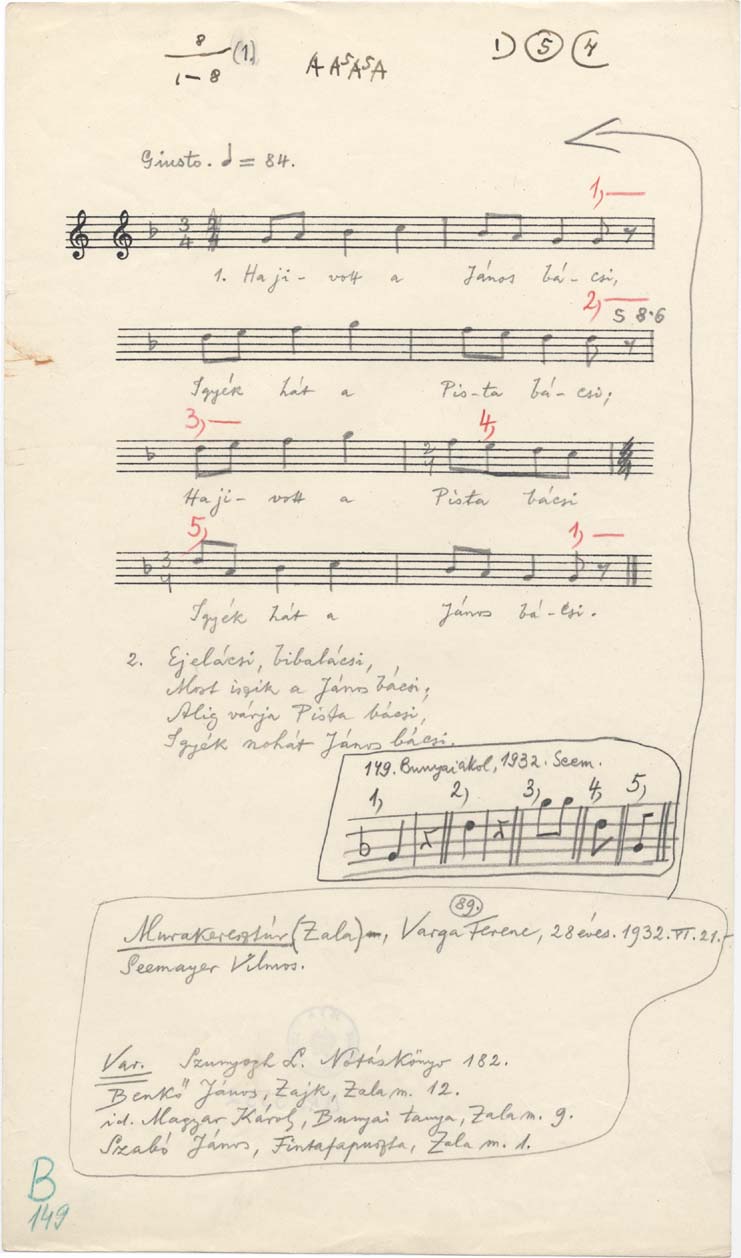 8
1-8 (1.)
A A⁵A⁵A
1) (5) (4
Giusto. = 84.
1,
3
4
1. Ha ji- vott a János bá- csi,
2,
5 8·6
Igyék hát a Pis-ta bá- csi;
3, 4,
2
4
Ha ji- vott a Pista bácsi
5, 1,
3
4
Igyék hát a János bá- csi.
2. Ejelácsi, bibalácsi,
Most iszik a János bácsi;
Alig várja Pista bácsi,
Igyék nohát János bácsi.
149. Bunyaiakol, 1932. Seem.
1, 2, 3, 4, 5,
89.
Murakeresztúr (Zala), Varga Ferenc, 28 éves. 1932. VI. 21.
Seemayer Vilmos.
Var. Szunyogh L. Nótáskönyv 182.
Benkő János, Zajk, Zala m. 12.
id. Magyar Károly, Bunyai tanya, Zala m. 9.
Szabó János, Fintafapuszta, Zala m. 1.
B
149